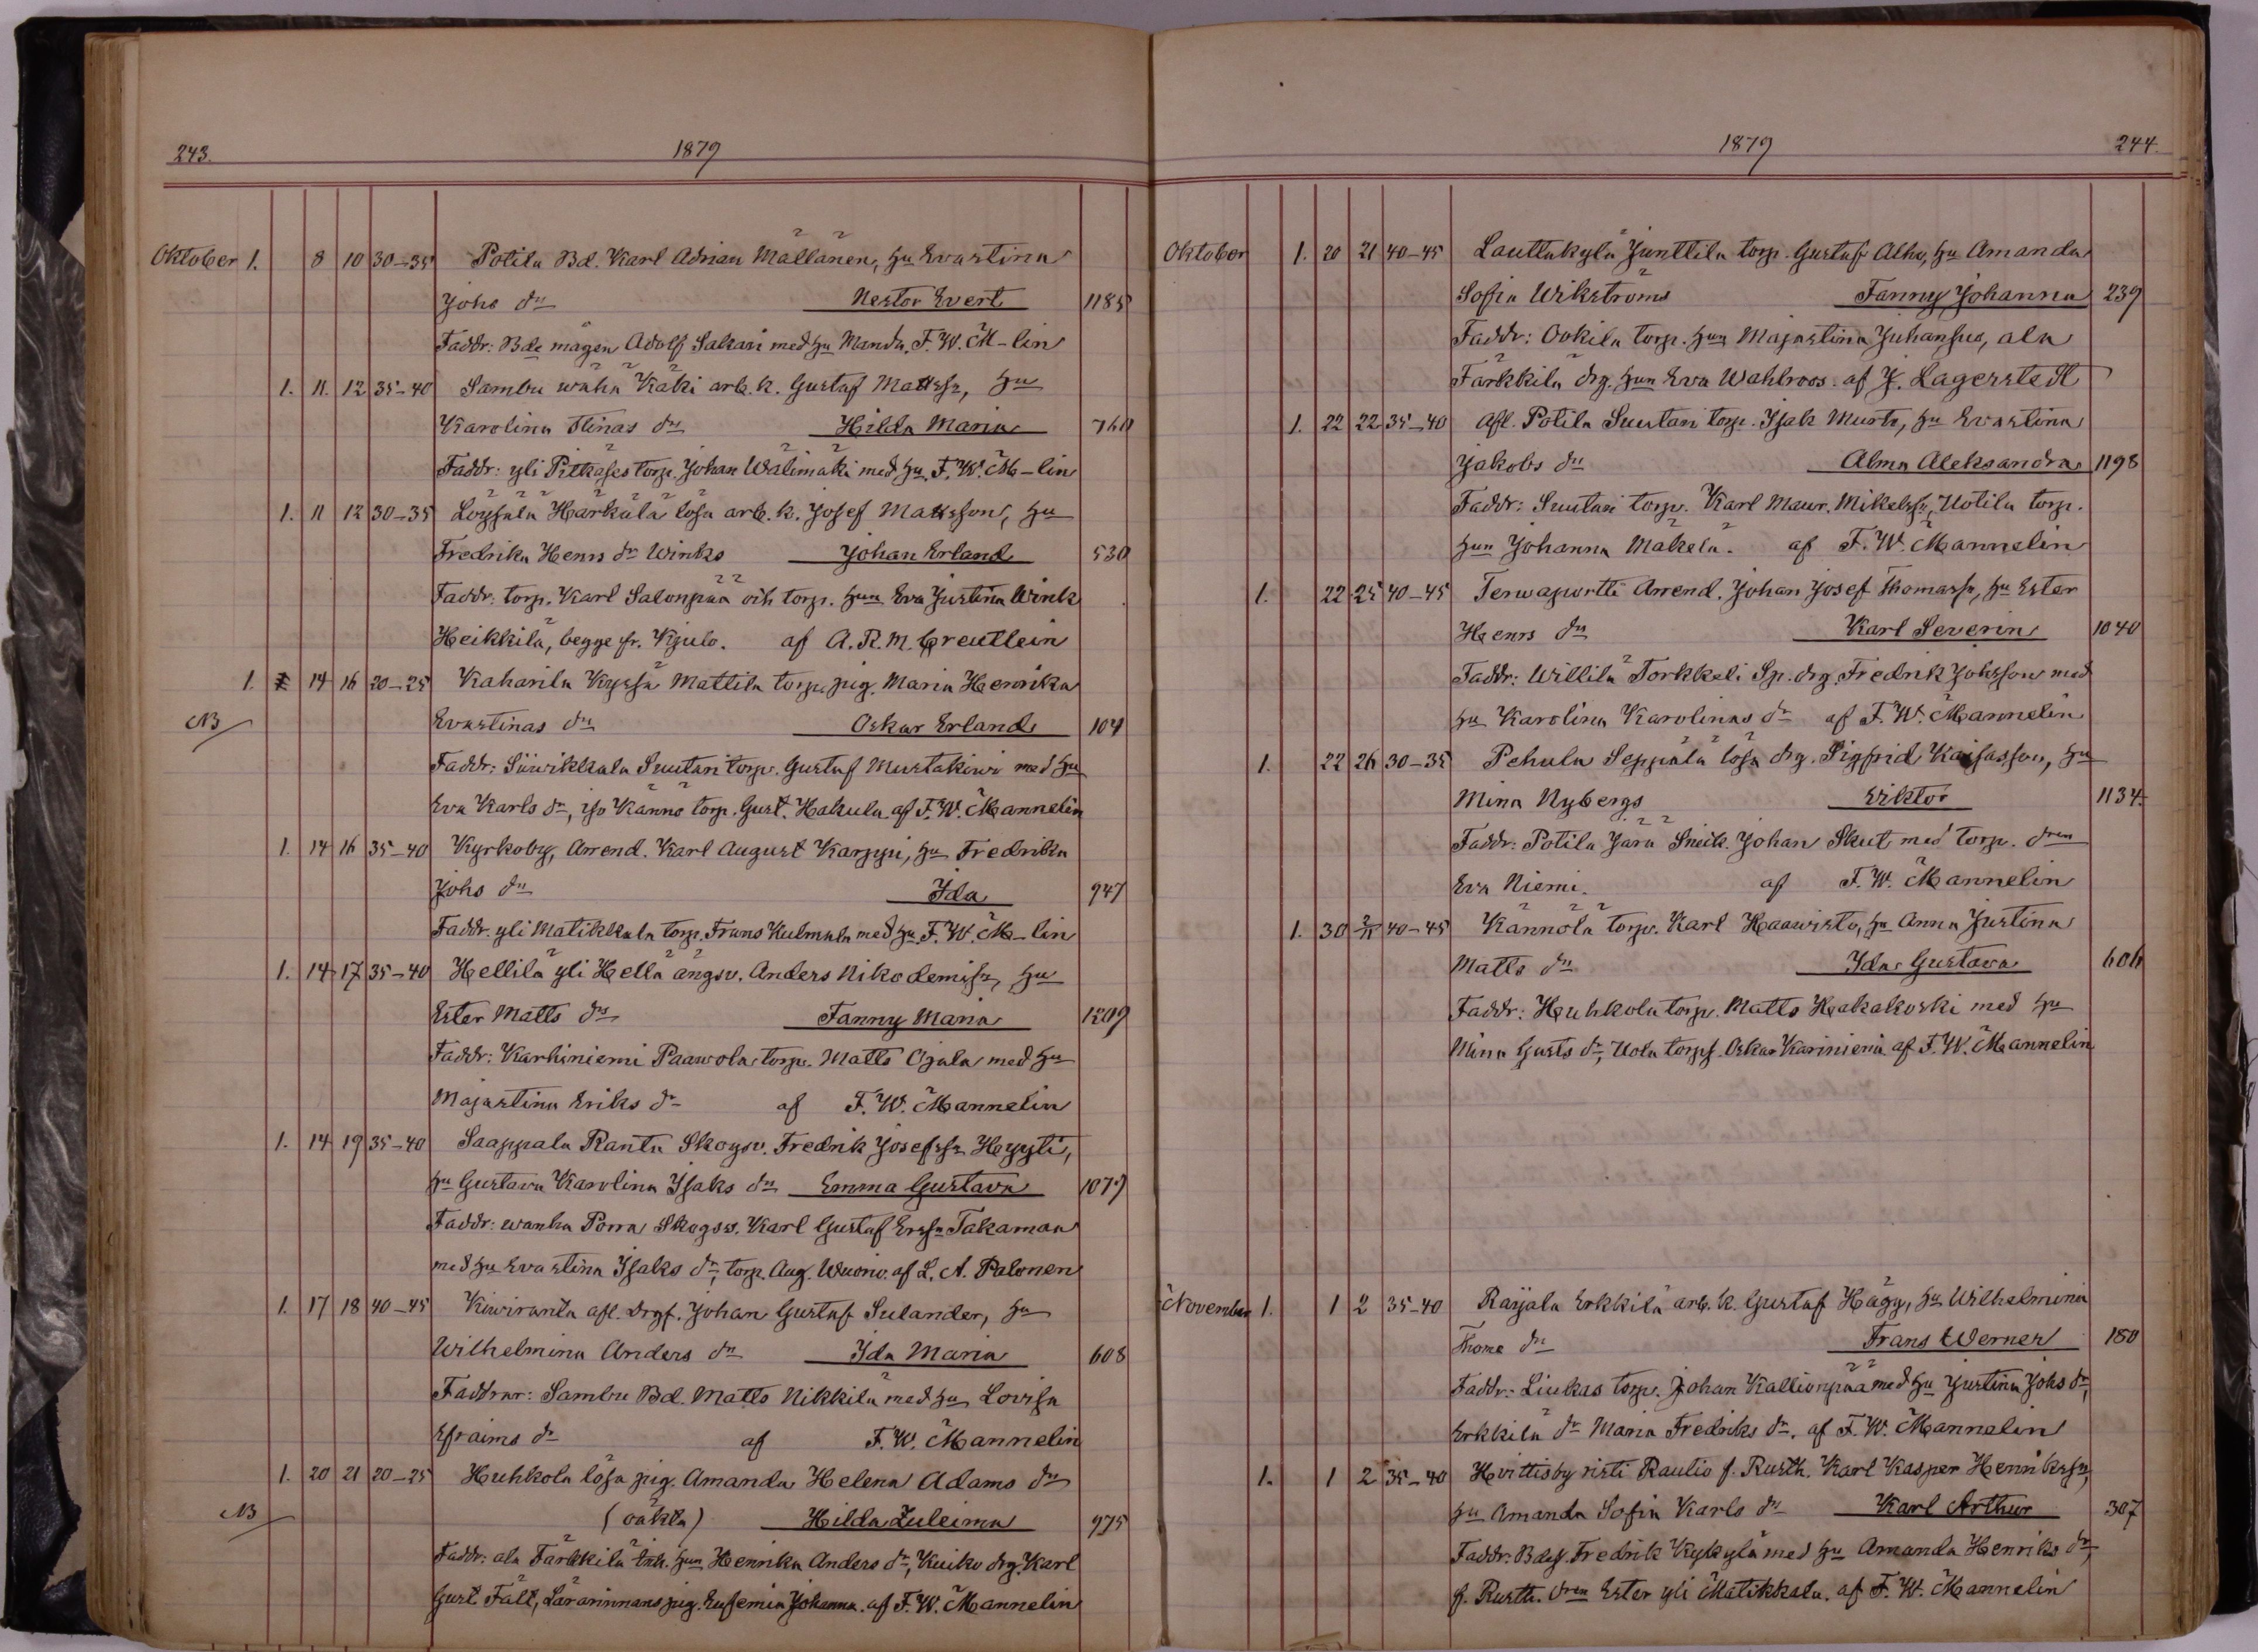 243. 1879
Oktober 1. 8 10 30–35 Potila Bd. Karl Adrian Mällänen, hu Evastina
Johs dr Nestor Evert 1185
Faddr: Bde mågen Adolf Sakari med hu Manda, F. W. M–lin
1. 11. 12 35–40 Sambu waha Käki arb. k. Gustaf Mattss, hu
Karolina Stinas dr Hilda Maria 760
Faddr: yli Pitkäjes torp. Johan Wälimäki med hu F. W. M–lin
1. 11 12 30–35 Löysälä Härkälä lösa arb. k. Josef Mattsson, hu
Fredrika Henrs dr Winks Johan Erland 530
Faddr: torp. Karl Salonpää och torp. hun Eva Justina Wink
Heikkilä, begge fr. Kjulo. af A. R. M. Creutlein
1. 14 16 20–25 Kaharila Kyssä Mattila torp. pig. Maria Henrika
NB Evastinas dr Oskar Erland 104
Faddr: Suwikkala Suutari torp. Gustaf Mustakiwi med hu
Eva Karls dr, iso Kännö torp. Gust. Hakula af F. W. Mannelin
1. 14 16 35–40 Kyrkoby, Arrend. Karl August Karppi, hu Fredrika
Johs dr Ida 947
Faddr. yli Matikkala torp. Frans Kulmala med hu F. W. M–lin
1. 14 17 35–40 Hellilä yli Hella ängsv. Anders Nikodemiss, hu
Ester Matts dr Fanny Maria 1209
Faddr: Karhiniemi Paawola torp. Matts Ojala med hu
Majastina Eriks dr af F. W. Mannelin
1. 14 19 35–40 Saappala Ranta Skogsv. Fredrik Josefss Heyyti,
hu Gustava Karolina Isaks dr Emma Gustava 1077
Faddr: wanha Porra Skogsv. Karl Gustaf Erss Takaman
med hu Evastina Isaks dr, torp. Aug. Wuorio. af L. A. Palonen
1. 17 18 40–45 Kiwiranta afl. Drgf. Johan Gustaf Sulander, hu
Wilhelmina Anders dr Ida Maria 608
Faddrar: Sambu Bd. Matts Nikkilä med hu Lovisa
Efraims dr af F. W. Mannelin
1. 20 21 20–25 Huhkola lösa pig. Amanda Helena Adams dr
NB (oäkta) Hilda Zuleima 975
Faddr: ala Färkkilä Ink. hun Henrika Anders dr, Kuiko drg. Karl
Gust Fält, Lärarinnans pig. Eufemia Johanna. af F. W. Mannelin
1879 244.
Oktober 1. 20 21 40–45 Lauttakylä Junttila torp. Gustaf Alho, hu Amanda
Sofia Wikströms Fanny Johanna 239
Faddr: Ovkila torp. hun Majastina Juhansus, ala
Färkkilä drg. hun Eva Wahlroos. af J. Lagerstedt
1. 22 22 35–40 Afl. Potila Suutari torp. Isak Musto, hu Evastina
Jakobs dr Alma Aleksandra 1198
Faddr: Suutari torp. Karl Maur. Mikelss, Uotila torp.
hun Johanna Mäkelä. af F. W. Mannelin
1. 22 25 40–45 Terwaportti Arrend. Johan Josef Thomass, hu Ester
Henrs dr Karl Severin 1040
Faddr: Willilä Torkkeli Sp. drg. Fredrik Johsson med
hu Karolina Karolinas dr af F. W. Mannelin
1. 22 26 30–35 Pehula Seppälä lösa drg. Sigfrid Kaisasson, hu
Mina Nybergs Wiktor 1134
Faddr: Potila Järä Sneik. Johan Skut med torp. dren
Eva Niemi. af F. W. Mannelin
1. 30 2/11 40–45 Kännölä torp. Karl Haawisto, hu Anna Justina
Matts dr Ida Gustava 606
Faddr: Huhkola torp. Matts Haakakoski med hu
Mina Gusts dr, Uola torps. Oskar Kariniemi af F. W. Mannelin
November 1. 1 2 35–40 Raijala Erkkilä arb. k. Gustaf Hägg, hu Wilhelmina
Thome dr Frans Werner 150
Faddr: Liukas torp. Johan Kallionpää med hu Justina Johs dr,
Erkkilä dr Maria Fredriks dr. af F. W. Mannelin
1. 1 2 35–40 Hvittisby risti Raulio f. Rusth. Karl Kasper Henrikss,
hu Amanda Sofia Karls dr Karl Arthur 307
Faddr: Bdes. Fredrik Kykylä med hu Amanda Henriks dr,
f. Rusth. dren Ester yli Matikkala. af F. W. Mannelin